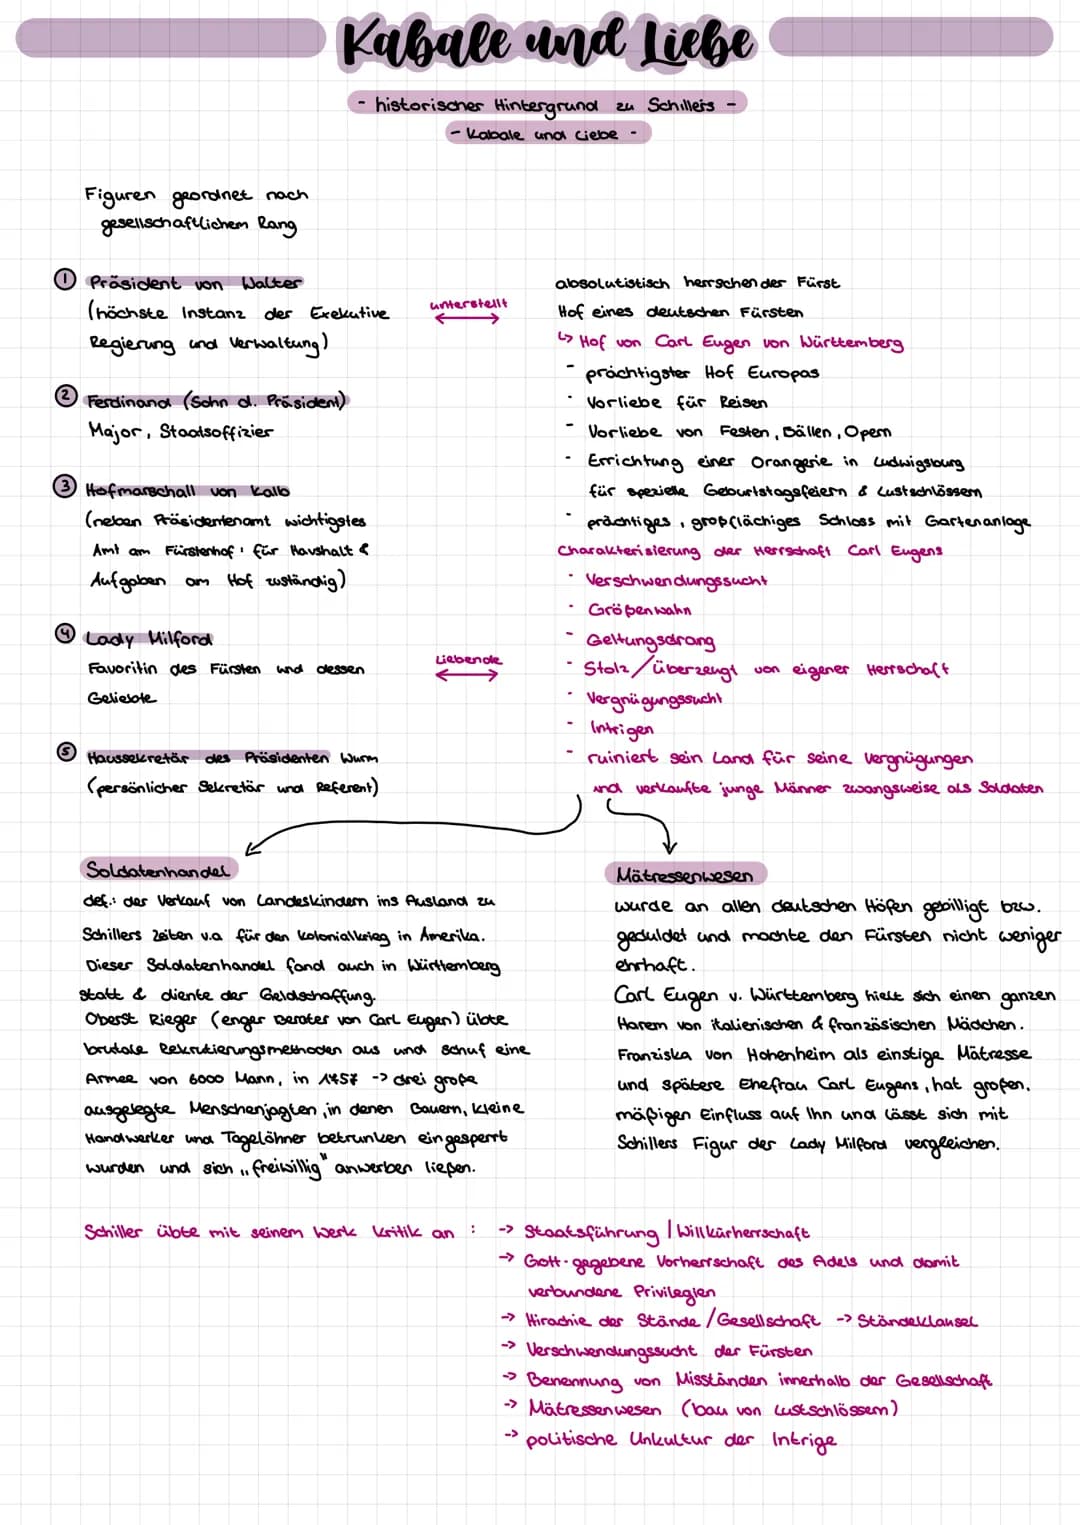 Kabale und Liebe
- historischer Hintergrund zu Schillers -
- Kabale und Liebe -
Figuren geordnet nach
gesellschaftlichem Rang
① Präsident von Walter
(höchste Instanz der Exekutive
Regierung und Verwaltung)
② Ferdinand (Sohn d. Präsident)
Major, Staatsoffizier
③ Hofmarschall von Kalb
(neben Präsidentenamt wichtigstes
Amt am Fürstenhof: für Haushalt &
Aufgaben am Hof zuständig)
④ Lady Milford
Favoritin des Fürsten und dessen
Geliebte
⑤ Haussekretär des Präsidenten Wurm
(persönlicher Sekretär und Referent)
unterstellt
Liebende
absolutistisch herrschender Fürst
Hof eines deutschen Fürsten
↳ Hof von Carl Eugen von Württemberg
- prächtigster Hof Europas
- Vorliebe für Reisen
- Vorliebe von Festen, Bällen, Opern
- Errichtung einer Orangerie in Ludwigsburg
für spezielle Geburtstagsfeiern & Lustschlössern
- prächtiges, großflächiges Schloss mit Gartenanlage
Charakterisierung der Herrschaft Carl Eugens
- Verschwendungssucht
- Größenwahn
- Geltungsdrang
- Stolz / überzeugt von eigener Herrschaft
- Vergnügungssucht
- Intrigen
- ruiniert sein Land für seine Vergnügungen
und verkaufte junge Männer zwangsweise als Soldaten
Soldatenhandel
def.: der Verkauf von Landeskindern ins Ausland zu
Schillers Zeiten v.a. für den Kolonialkrieg in Amerika.
Dieser Soldatenhandel fand auch in Württemberg
statt & diente der Geldschaffung.
Oberst Rieger (enger Berater von Carl Eugen) übte
brutale Rekrutierungsmethoden aus und schuf eine
Armee von 6000 Mann, in 1457 -> drei große
ausgelegte Menschenjagten, in denen Bauern, kleine
Handwerker und Tagelöhner betrunken eingesperrt
wurden und sich „freiwillig" anwerben ließen.
Mätressenwesen
wurde an allen deutschen Höfen gebilligt bzw.
geduldet und machte den Fürsten nicht weniger
ehrhaft.
Carl Eugen v. Württemberg hielt sich einen ganzen
Harem von italienischen & französischen Mädchen.
Franziska von Hohenheim als einstige Mätresse
und spätere Ehefrau Carl Eugens, hat großen,
mäßigen Einfluss auf Ihn und lässt sich mit
Schillers Figur der Lady Milford vergleichen.
Schiller übte mit seinem Werk Kritik an : -> Staatsführung / Willkürherrschaft
-> Gott-gegebene Vorherrschaft des Adels und damit
verbundene Privilegien
-> Hirachie der Stände / Gesellschaft -> Ständeklausel
-> Verschwendungssucht der Fürsten
-> Benennung von Misständen innerhalb der Gesellschaft
-> Mätressenwesen (bau von Lustschlössern)
-> politische Unkultur der Intrige